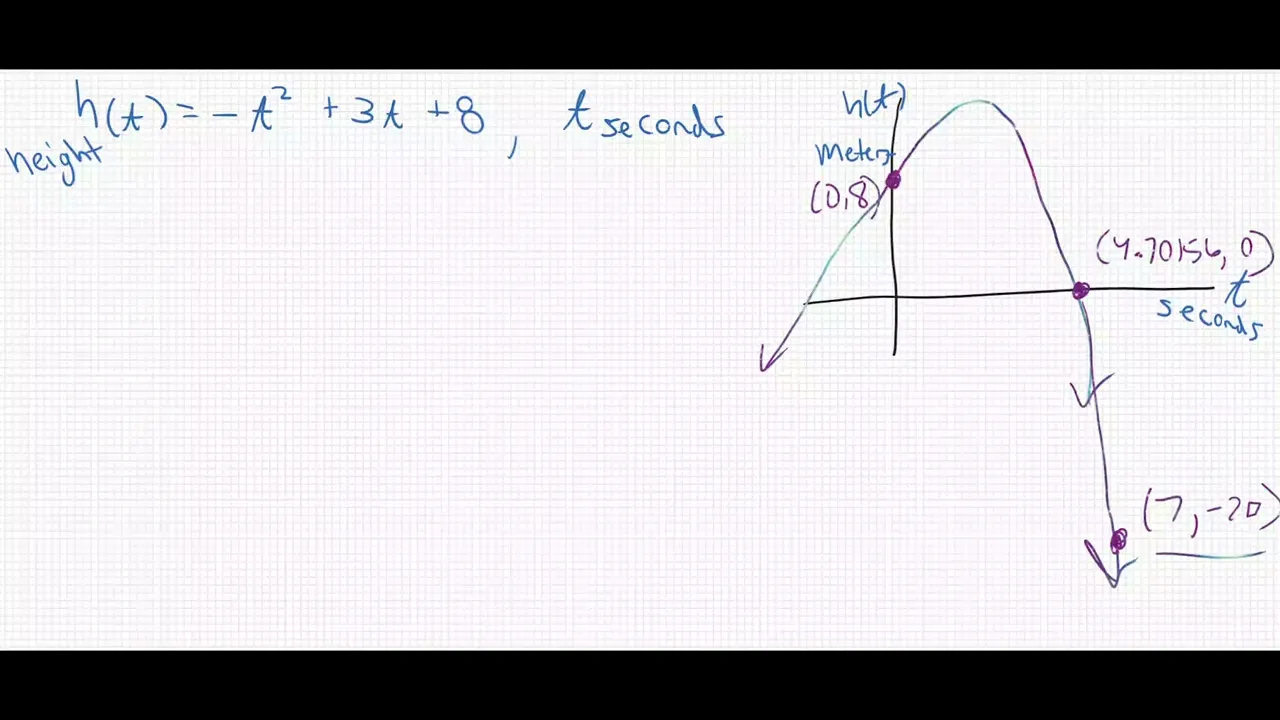 h(t) = -t² + 3t + 8, t seconds
height
h(t)
meters
(0,8)
(4.70156, 0)
t
seconds
(7, -20)